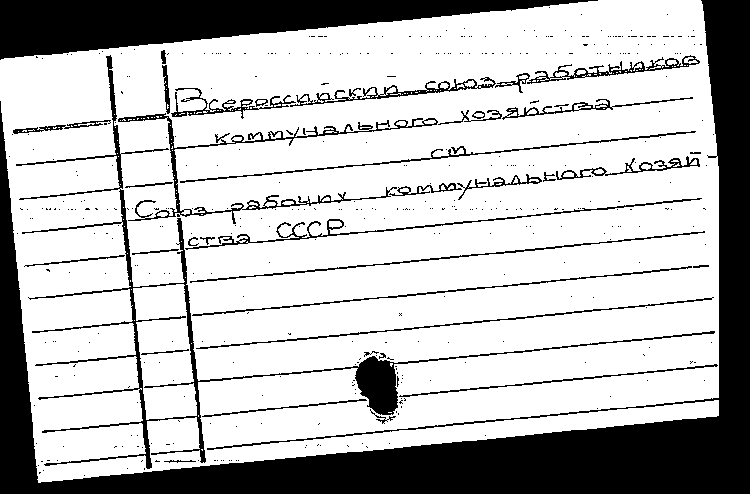 Всероссийский союз работников
коммунального хозяйства
см.
Союз рабочих коммунального хозяй-
ства СССР